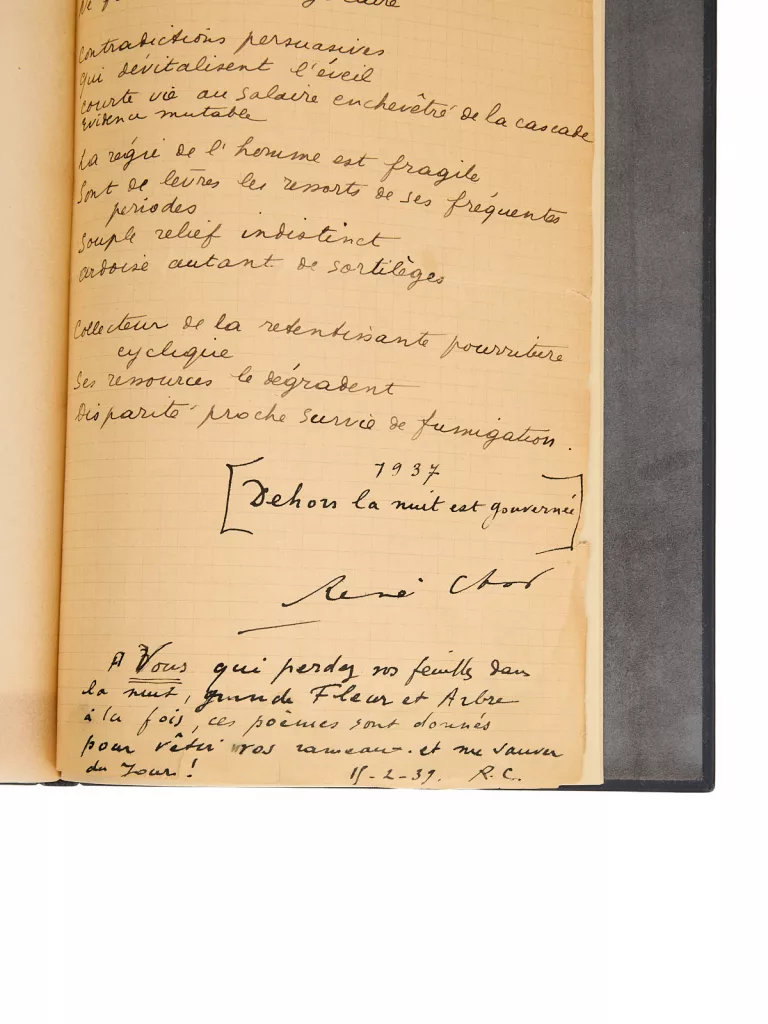 contradictions persuasives
qui dévitalisent l'éveil
courte vie au salaire enchevêtré de la cascade
évidence mutable
La régie de l'homme est fragile
Sont de lèvres les ressorts de ses fréquentes
périodes
Souple relief indistinct
ardoise autant de sortilèges
Collecteur de la retentissante pourriture
cyclique
Ses ressources le dégradent
Disparité proche survie de fumigation.
1937
[Dehors la nuit est gouvernée]
René Char
A Vous qui perdez vos feuilles dans
la nuit, grande Fleur et Arbre
à la fois, ces poèmes sont donnés
pour vêtir vos rameaux et me sauver
du Jour! 15-2-39. R.C.